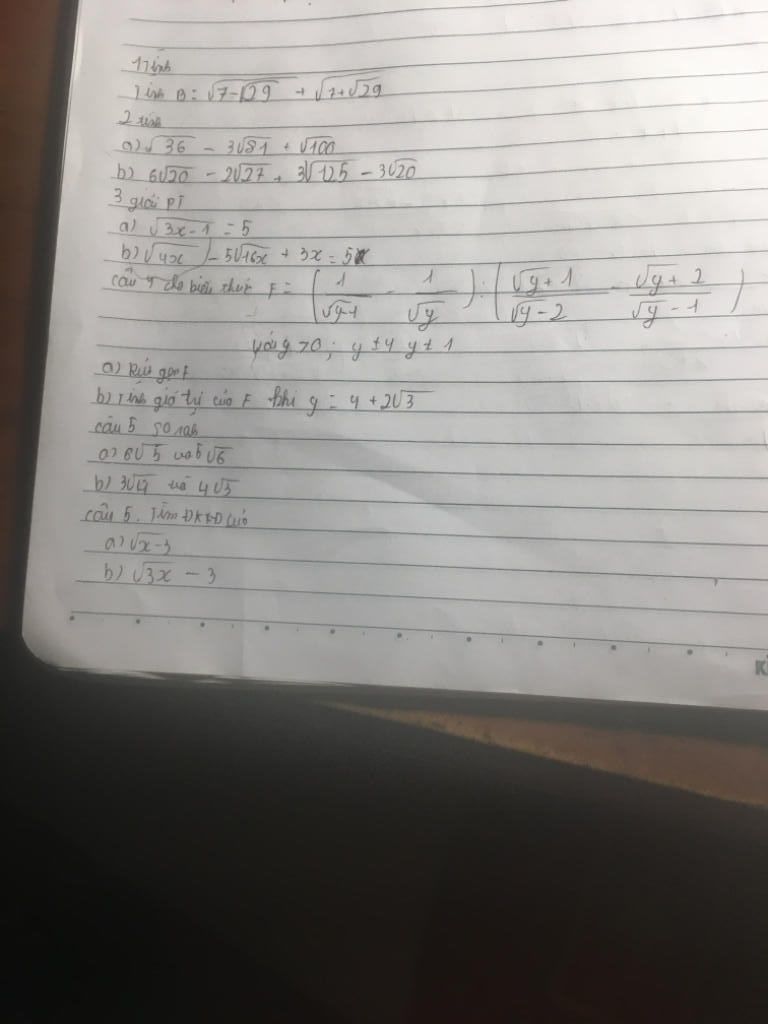 1 Tính
Tính B = √7-√29 + √7+√29
2 tính
a) √36 - 3√81 + √100
b) 6√20 - 2√27 + 3√125 - 3√20
3 giải PT
a) √3x-1 = 5
b) √4x - 5√16x + 3x = 5
câu 4 cho biểu thức F = (1/√y-1 - 1/√y) : (√y+1/√y-2 - √y+2/√y-1)
với y>0; y ≠ 4 y ≠ 1
a) Rút gọn F
b) Tính giá trị của F khi y = 4 + 2√3
câu 5 so sánh
a) 6√5 và 5√6
b) và 4√3
câu 5. Tìm ĐKXĐ của
a) √x-3
b) √3x - 3